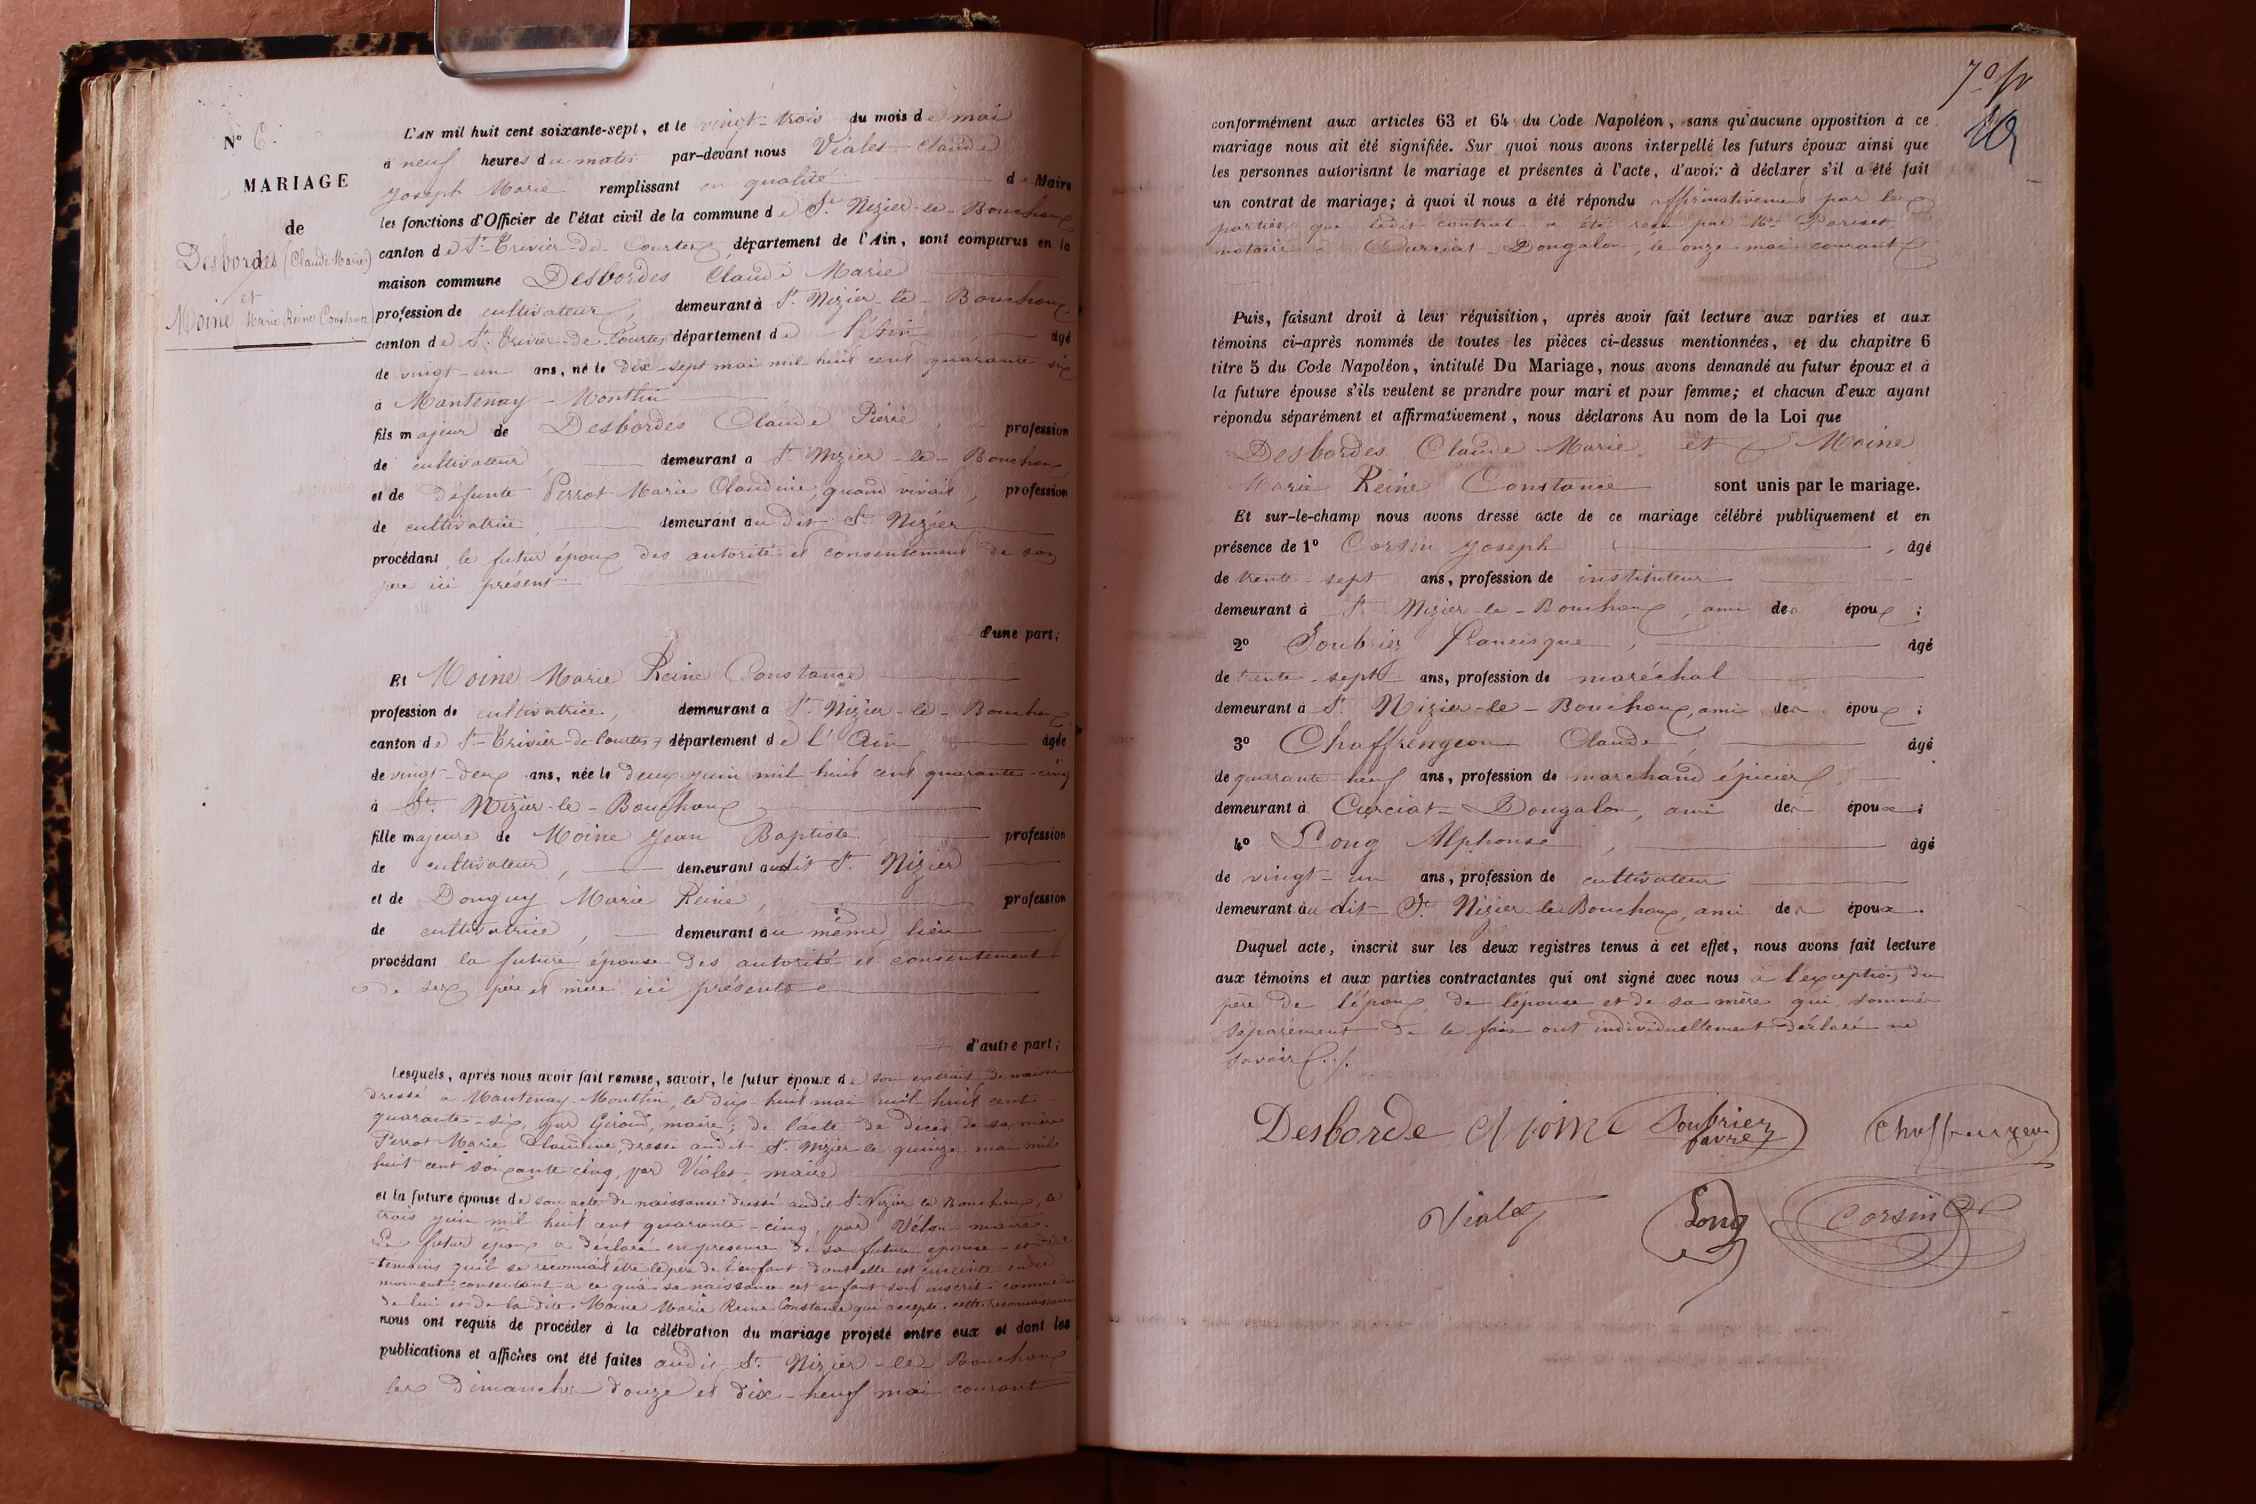 N° 6.
MARIAGE
de
Desbordes (Claude Marie)
et
Moine Marie Reine Constance
L'AN mil huit cent soixante-sept, et le vingt-trois du mois de mai
à neuf heures du matin par-devant nous Vialet Claude
Joseph Marie remplissant en qualité de Maire
les fonctions d'Officier de l'état civil de la commune de St Nizier-le-Bouchoux
canton de St Trivier-de-Courtes, département de l'Ain, sont comparus en la
maison commune Desbordes Claude Marie
profession de cultivateur, demeurant à St Nizier-le-Bouchoux,
canton de St Trivier-de-Courtes département de l'Ain, âgé
de vingt-un ans, né le dix-sept mai mil huit cent quarante-six
à Mantenay-Montlin
fils majeur de Desbordes Claude Pierre, profession
de cultivateur, demeurant à St Nizier-le-Bouchoux,
et de défunte Perrot Marie Claudine, quand vivait, profession
de cultivatrice, demeurant au dit St Nizier
procédant le futur époux des autorité et consentement de son
père ici présent
d'une part;
Et Moine Marie Reine Constance
profession de cultivatrice, demeurant à St Nizier-le-Bouchoux
canton de St Trivier-de-Courtes, département de l'Ain âgée
de vingt-deux ans, née le deux juin mil huit cent quarante-cinq
à St Nizier-le-Bouchoux
fille majeure de Moine Jean Baptiste, profession
de cultivateur, demeurant audit St Nizier
et de Donguy Marie Reine, profession
de cultivatrice, demeurant au même lieu
procédant la future épouse des autorité et consentement
de ses père et mère ici présents
d'autre part;
Lesquels, après nous avoir fait remise, savoir, le futur époux de son extrait de naissance
dressé à Mantenay-Montlin, le dix-huit mai mil huit cent
quarante-six, par Giroud, maire; de l'acte de décès de sa mère
Perrot Marie Claudine, dressé audit St Nizier le quinze mai mil
huit cent soixante cinq, par Vialet, maire
et la future épouse de son acte de naissance dressé audit St Nizier le Bouchoux, le
trois juin mil huit cent quarante-cinq, par Vélon maire.
Le futur époux a déclaré en présence de sa future épouse et des
témoins qu'il se reconnait être le père de l'enfant dont elle est enceinte en ce
moment consentant à ce qu'à sa naissance cet enfant soit inscrit comme né
de lui et de la dite Moine Marie Reine Constance qui accepte cette reconnaissance
nous ont requis de procéder à la célébration du mariage projeté entre eux et dont les
publications et affiches ont été faites audit St Nizier-le-Bouchoux
les Dimanches douze et dix-neuf mai courant
conformément aux articles 63 et 64 du Code Napoléon, sans qu'aucune opposition à ce
mariage nous ait été signifiée. Sur quoi nous avons interpellé les futurs époux ainsi que
les personnes autorisant le mariage et présentes à l'acte, d'avoir à déclarer s'il a été fait
un contrat de mariage; à quoi il nous a été répondu affirmativement par les
parties, que ledit contrat a été reçu par Me Pariset,
notaire à Curciat-Dongalon, le onze mai courant
Puis, faisant droit à leur réquisition, après avoir fait lecture aux parties et aux
témoins ci-après nommés de toutes les pièces ci-dessus mentionnées, et du chapitre 6
titre 5 du Code Napoléon, intitulé Du Mariage, nous avons demandé au futur époux et à
la future épouse s'ils veulent se prendre pour mari et pour femme; et chacun d'eux ayant
répondu séparément et affirmativement, nous déclarons Au nom de la Loi que
Desbordes Claude Marie et Moine
Marie Reine Constance sont unis par le mariage.
Et sur-le-champ nous avons dressé acte de ce mariage célébré publiquement et en
présence de 1° Corsin Joseph, âgé
de trente-sept ans, profession de instituteur
demeurant à St Nizier-le-Bouchoux, ami des époux;
2° Soubrier Francisque, âgé
de trente-sept ans, profession de maréchal
demeurant à St Nizier-le-Bouchoux, ami des époux;
3° Chaffrengeon Claude, âgé
de quarante-neuf ans, profession de marchand épicier,
demeurant à Curciat-Dongalon, ami des époux;
4° Long Alphonse, âgé
de vingt-un ans, profession de cultivateur
demeurant au dit St Nizier-le-Bouchoux, ami des époux.
Duquel acte, inscrit sur les deux registres tenus à cet effet, nous avons fait lecture
aux témoins et aux parties contractantes qui ont signé avec nous à l'exception du
père de l'époux, de l'épouse et de sa mère qui sommés
séparément de le faire ont individuellement déclaré ne
savoir
Desborde Moine Soubrier
favre Chaffrengeon
Vialet Long Corsin